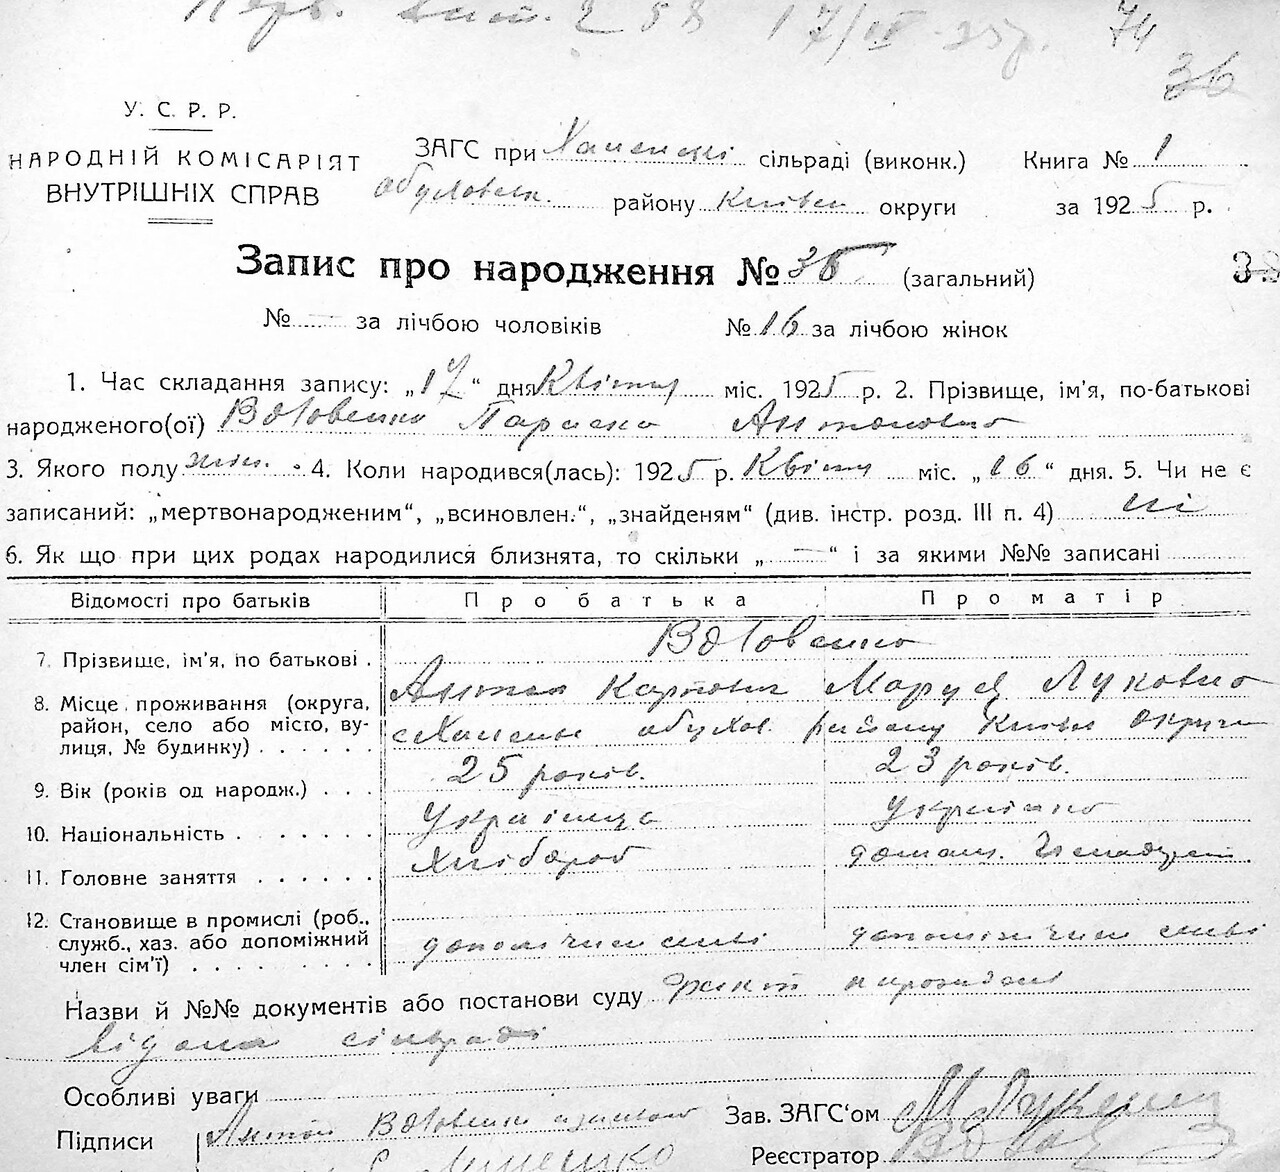 Перв. вип. 258 17/IX-25р. 74
36
У. С. Р. Р.
НАРОДНІЙ КОМІСАРІЯТ
ВНУТРІШНІХ СПРАВ
ЗАГС при сільраді (виконк.) Книга № 1
району Київськ округи за 1925 р.
Запис про народження № 35 (загальний)
№ — за лічбою чоловіків № 16 за лічбою жінок
1. Час складання запису: „17“ дня Квітня міс. 1925 р. 2. Прізвище, ім'я, по-батькові
народженого(ої) Вдовенко Параска Антоновна
3. Якого полу жін. 4. Коли народився(лась): 1925 р. Квітня міс. „16“ дня. 5. Чи не є
записаний: „мертвонародженим“, „всиновлен.“, „знайденям“ (див. інстр. розд. III п. 4) ні
6. Як що при цих родах народилися близнята, то скільки „—“ і за якими №№ записані
Відомості про батьків Про батька Про матір
7. Прізвище, ім'я, по батькові . Вдовенко
Антон Карпович Маруся Луковна
8. Місце проживання (округа, район, село або місто, ву-
лиця, № будинку) . . . . . . обухов. району Київ округи
9. Вік (років од народж.) . . . 25 років. 23 років.
10. Національність . . . . . . . Українець Українка
11. Головне заняття . . . . . . Хлібороб домашн.
12. Становище в промислі (роб.,
служб., хаз. або допоміжний
член сім'ї) . . . . . . . . .
Назви й №№ документів або постанови суду факт народження
відома сільраді
Особливі уваги
Підписи Антон Вдовенко Зав. ЗАГС'ом
Реєстратор